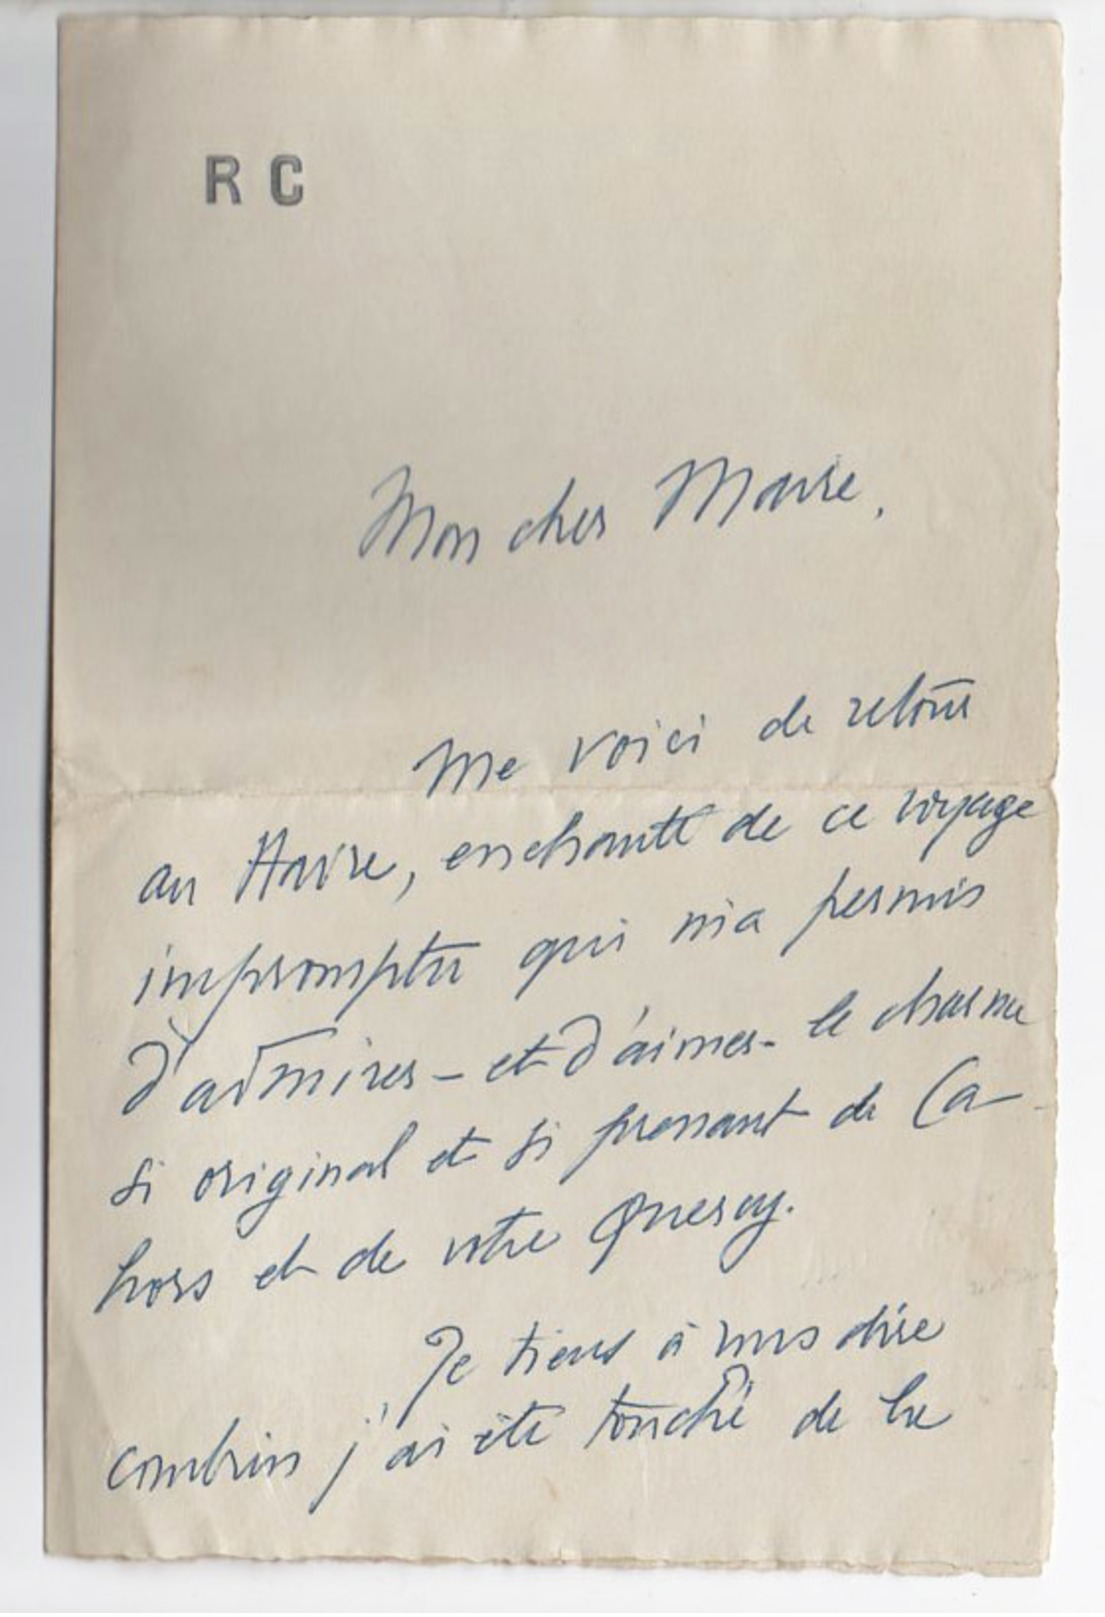 R C
Mon cher Maire,
Me voici de retour
au Havre, enchanté de ce voyage
impromptu qui m'a permis
d'admirer - et d'aimer - le charme
si original et si prenant de Ca-
hors et de votre Quercy.
Je tiens à vous dire
combien j'ai été touché de